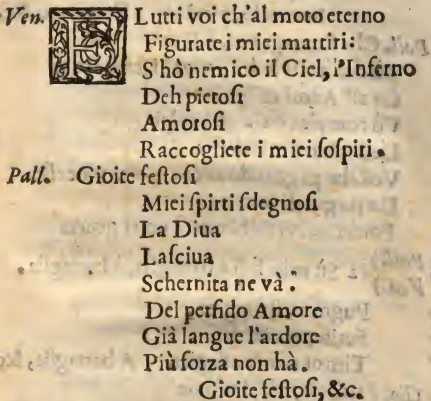 Ven. FLutti voi ch'al moto eterno
Figurate i miei martiri:
S'hò nemico il Ciel, l'Inferno
Deh pietoſi
Amoroſi
Raccogliete i miei ſoſpiri.
Pall. Gioite feſtoſi
Miei ſpirti ſdegnoſi
La Diua
Laſciua
Schernita ne và.
Del perfido Amore
Già langue l'ardore
Più forza non hà.
Gioite feſtoſi, &c.